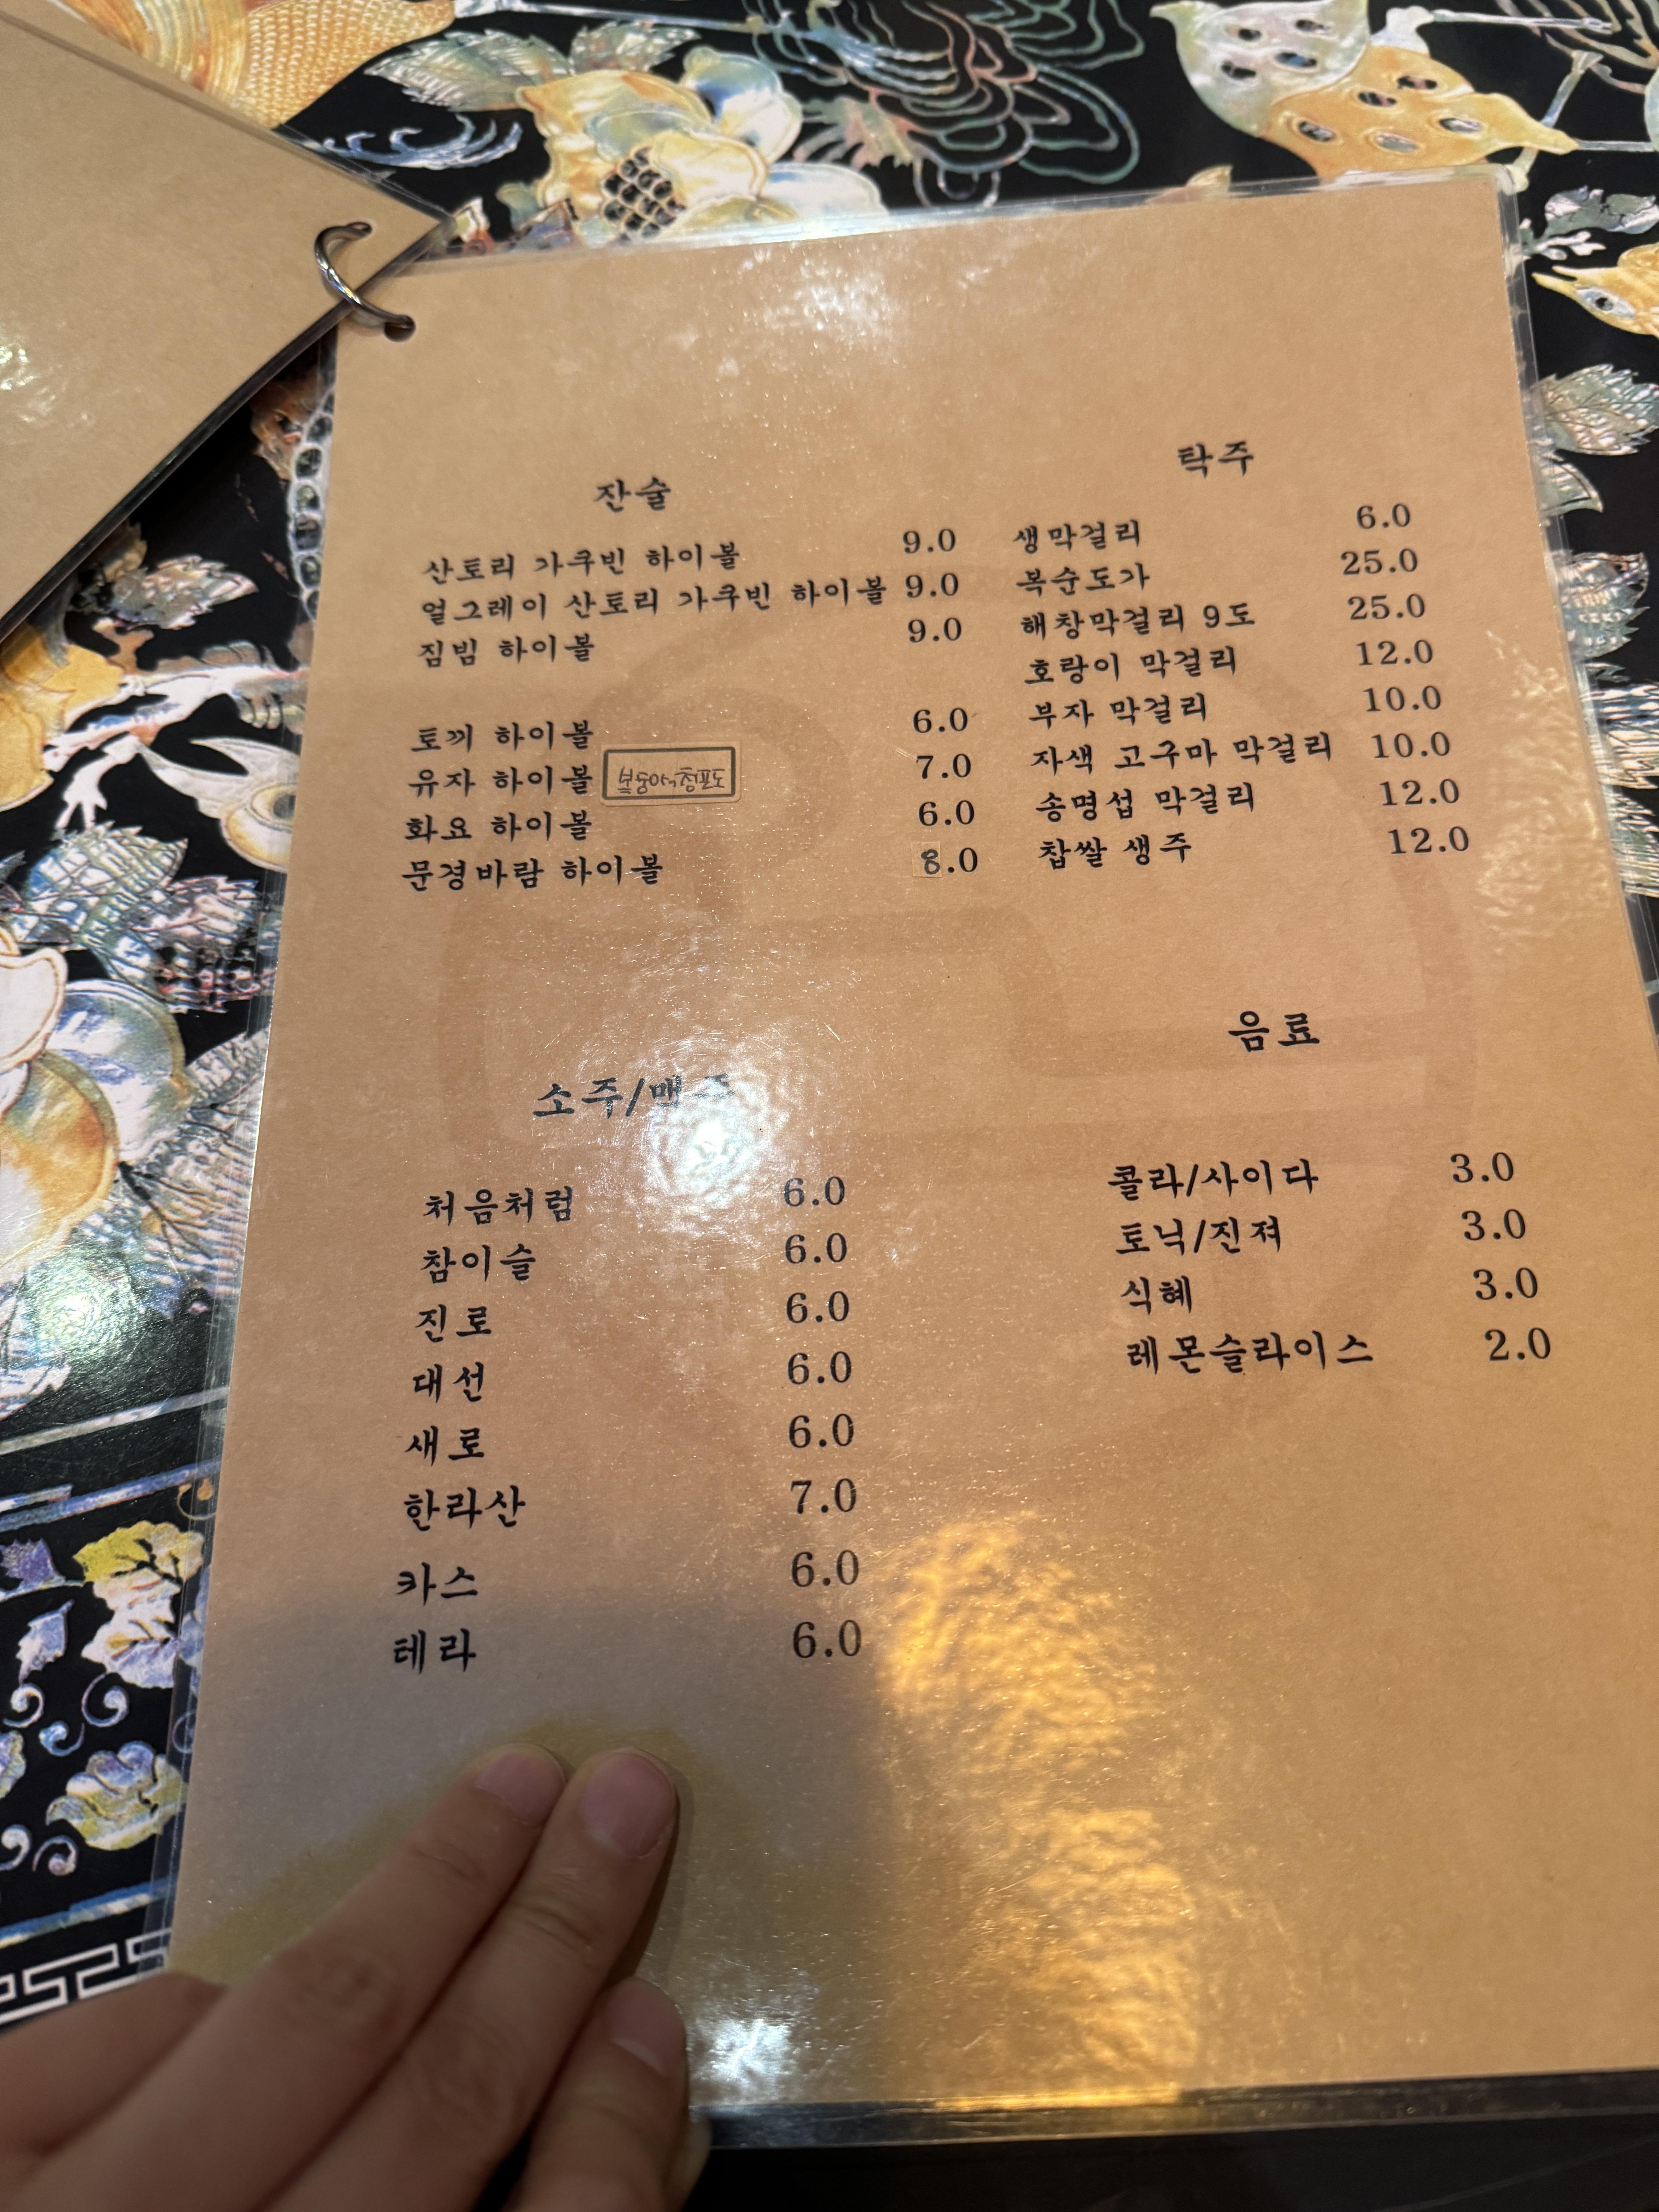 잔술
산토리 가쿠빈 하이볼 9.0
얼그레이 산토리 가쿠빈 하이볼 9.0
짐빔 하이볼 9.0
토끼 하이볼 6.0
유자 하이볼 복숭아 청포도 7.0
화요 하이볼 6.0
문경바람 하이볼 8.0
탁주
생막걸리 6.0
복순도가 25.0
해창막걸리 9도 25.0
호랑이 막걸리 12.0
부자 막걸리 10.0
자색 고구마 막걸리 10.0
송명섭 막걸리 12.0
찹쌀 생주 12.0
소주/맥주
처음처럼 6.0
참이슬 6.0
진로 6.0
대선 6.0
새로 6.0
한라산 7.0
카스 6.0
테라 6.0
음료
콜라/사이다 3.0
토닉/진져 3.0
식혜 3.0
레몬슬라이스 2.0